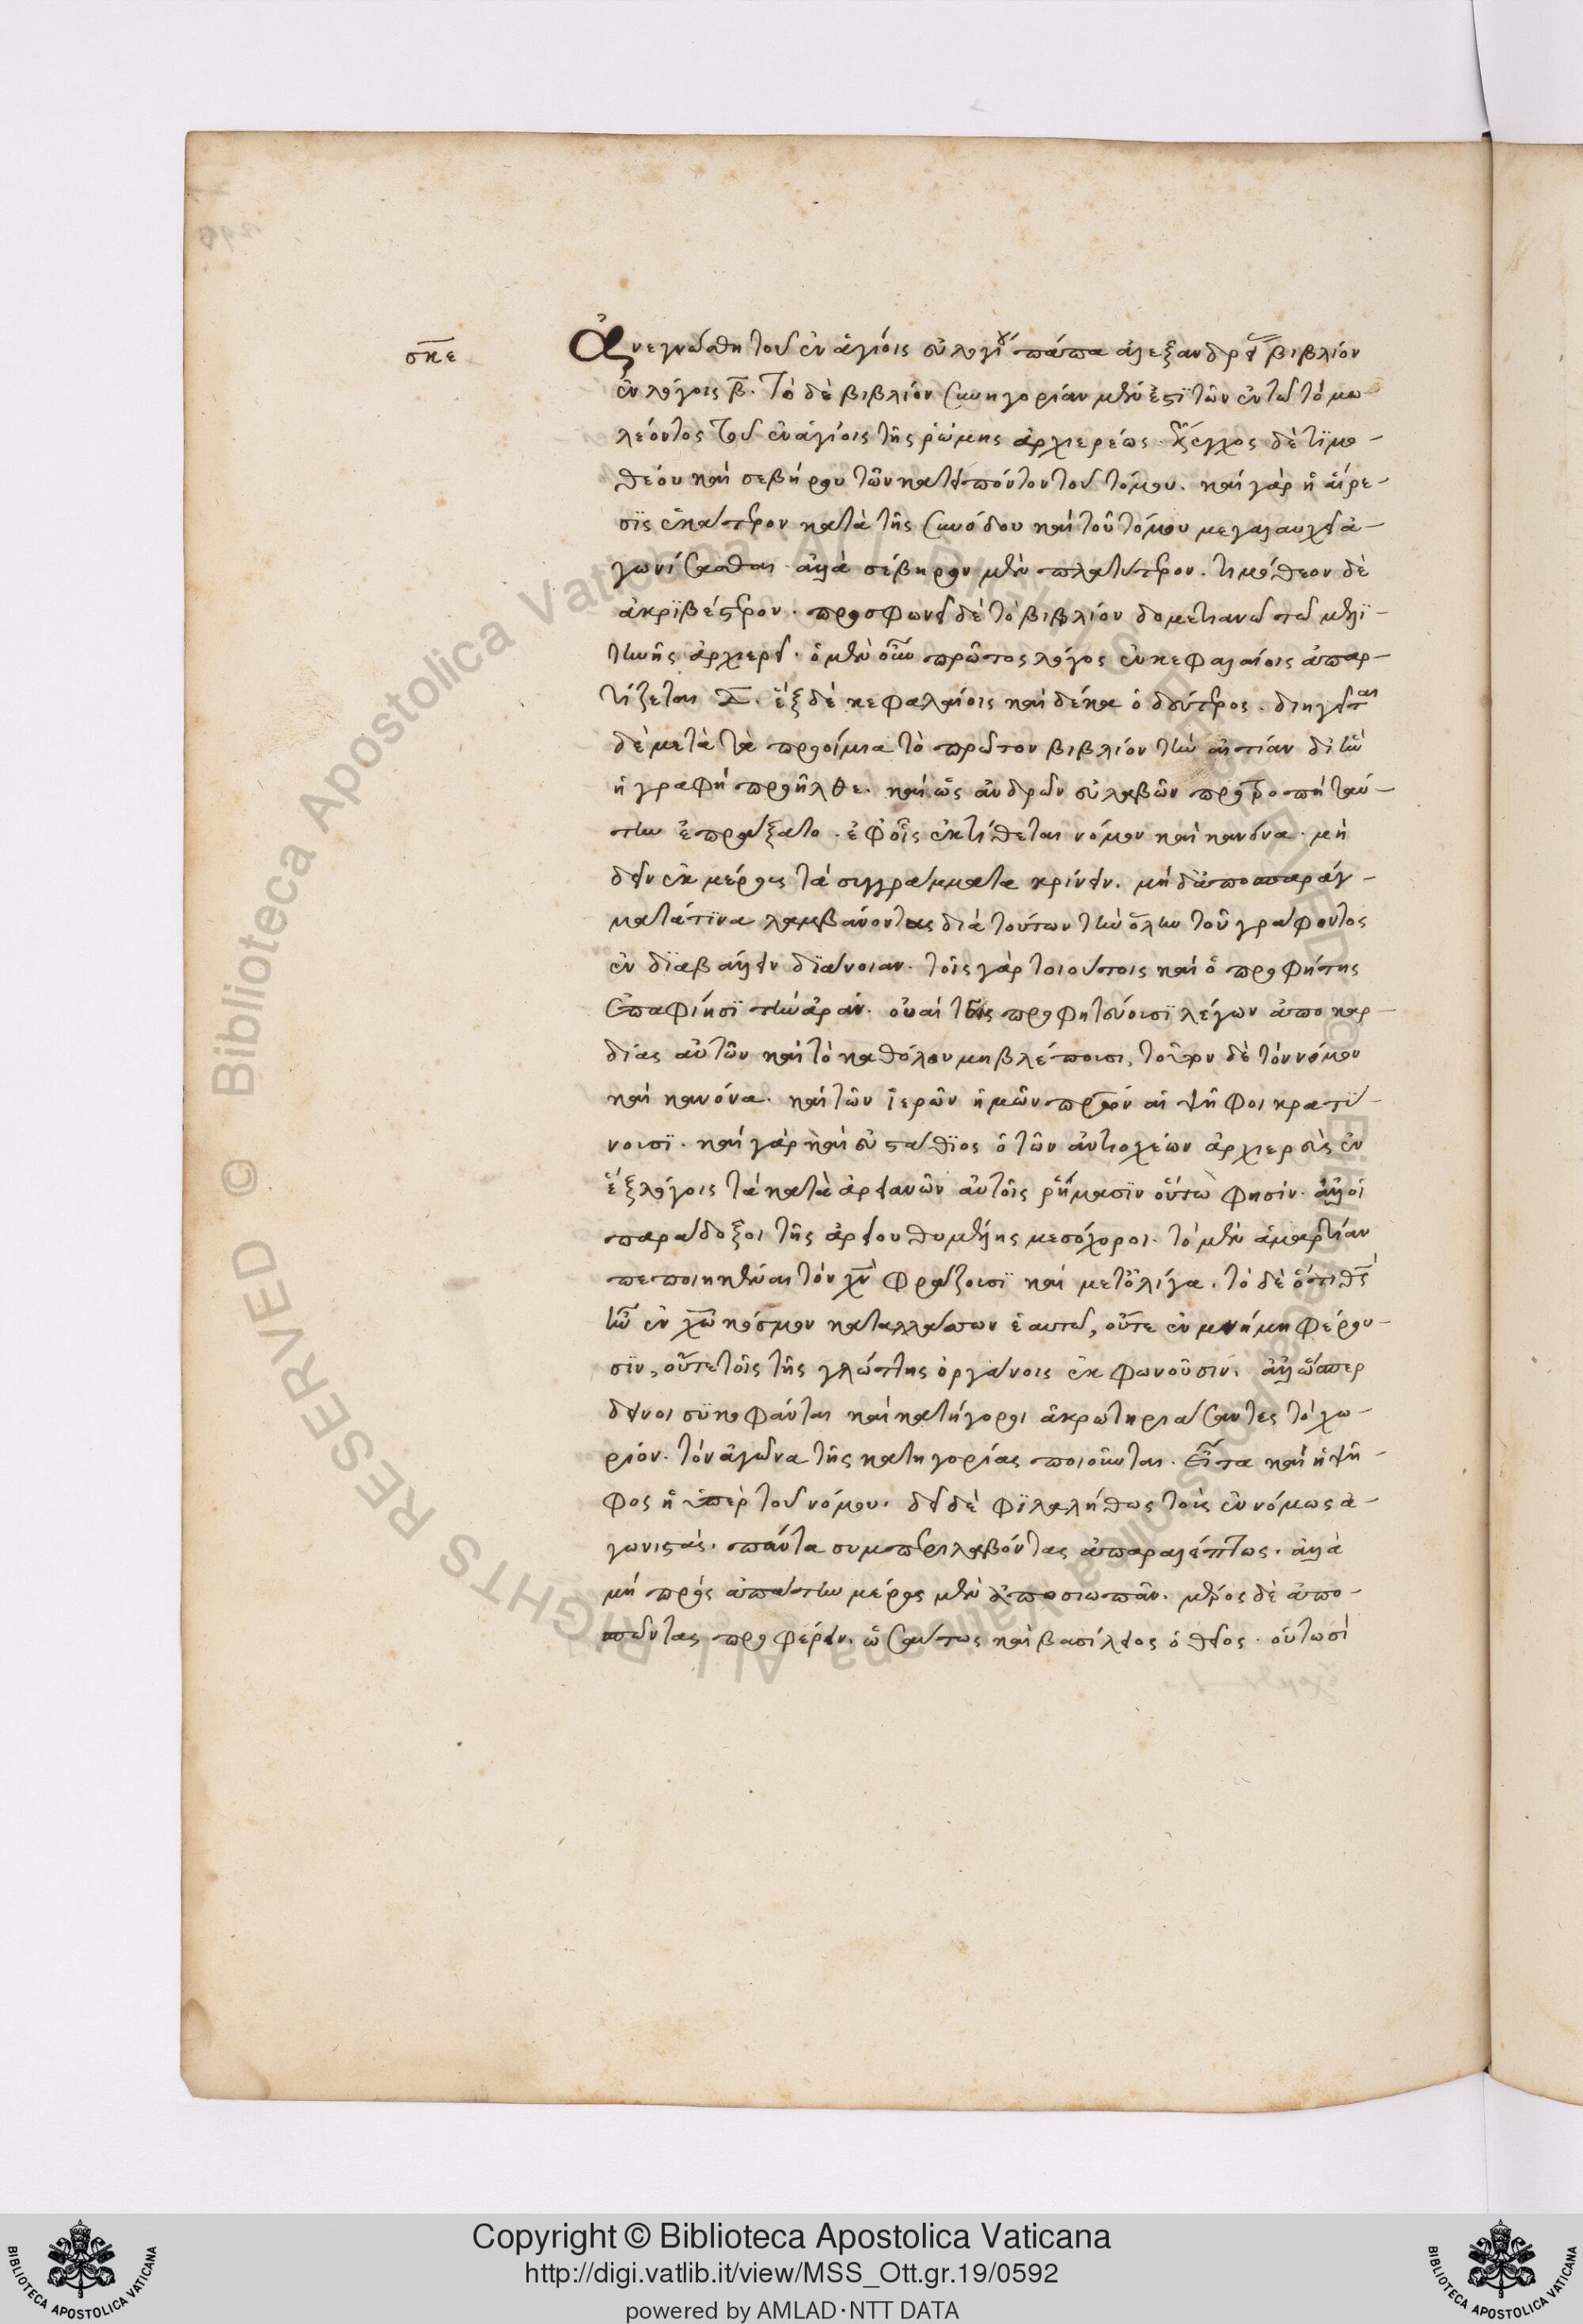 σκε
Ἀνεγνώσθη τοῦ ἐν ἁγίοις εὐλογίου πάπα ἀλεξανδρείας βιβλίον
ἐν λόγοις β. Τὸ δὲ βιβλίον συνηγορίαν μὲν ἔχει τῶν ἐν τῶ τόμω
λέοντος τοῦ ἐν ἁγίοις τῆς ῥώμης ἀρχιερέως. ἔλεγχος δὲ τιμο-
θέου καὶ σεβήρου τῶν κατειπόντων τοῦ τόμου. καὶ γὰρ ἡ αἵρε-
σις ἑκάτερον κατὰ τῆς συνόδου καὶ τοῦ τόμου μεγαλαυχεῖ ἀ-
γωνίσασθαι. ἀλλὰ σέβηρον μὲν πλατύτερον. τιμόθεον δὲ
ἀκριβέστερον. προσφωνεῖ δὲ τὸ βιβλίον δομετιανῶ τῶ μελι-
τινῆς ἀρχιερεῖ. ὁ μὲν οὖν πρῶτος λόγος ἐν κεφαλαίοις ἀπαρ-
τίζεται λ. ἓξ δὲ κεφαλαίοις καὶ δέκα ὁ δεύτερος. διηγεῖται
δὲ μετὰ τὰ προοίμια τὸ πρῶτον βιβλίον τὴν αἰτίαν δι' ἣν
ἡ γραφὴ προῆλθε. καὶ ὡς ἀνδρῶν εὐλαβῶν προτροπὴ ταύ-
την ἐπράξατο. ἐφ' οἷς ἐκτίθεται νόμον καὶ κανόνα. μὴ
δεῖν ἐκ μέρους τὰ συγγράμματα κρίνειν. μὴ δ' ἀποσπαράγ-
ματά τινα λαμβάνοντας διὰ τούτων τὴν ὅλην τοῦ γράφοντος
ἐν διαβάλλειν διάνοιαν. τοῖς γὰρ τοιούτοις καὶ ὁ προφήτης
ἐπαφίησι τὴν ἀράν. οὐαὶ τοῖς προφητεύουσι λέγων ἀπο καρ-
δίας αὐτῶν καὶ τὸ καθόλου μη βλέπουσι, τοῦτον δὲ τὸν νόμον
καὶ κανόνα. καὶ τῶν ἱερῶν ἡμῶν πατέρων αἱ ψῆφοι κρατύ-
νουσι. καὶ γὰρ καὶ εὐστάθιος ὁ τῶν ἀντιοχέων ἀρχιερεὺς ἐν
ἓξ λόγοις τὰ κατὰ ἀρειανῶν αὐτοῖς ῥήμασιν οὕτω φησίν. ἀλλ' οἱ
παράδοξοι τῆς ἀρείου θυμέλης μεσόχοροι. τὸ μὲν ἁμαρτίαν
πεποιηκέναι τὸν χν φράζουσι καὶ μετ' ὀλίγα. τὸ δὲ ὅτι θς
ἦν ἐν χω κόσμον καταλλάττων ἑαυτῶ, οὔτε ἐν μνήμη φέρου-
σιν, οὔτε τοῖς τῆς γλώττης ὀργάνοις ἐκφωνοῦσιν. ἀλλ' ὥσπερ
δεινοὶ συκοφάνται καὶ κατήγοροι ἀκρωτηριάσαντες τὸ χω-
ρίον. τὸν ἀγῶνα τῆς κατηγορίας ποιοῦνται. εἶτα καὶ ἡ ψῆ-
φος ἡ ὑπὲρ τοῦ νόμου. δεῖ δὲ φιλαλήθως τοὺς ἐννόμως ἀ-
γωνιστάς. πάντα συμπεριλαβόντας ἀπαραλείπτως. ἀλλὰ
μὴ πρὸς ἀπάτην μέρος μὲν ἀποσιωπᾶν. μέρος δὲ ἀπο-
σπῶντας προφέρειν. ὡσαύτως καὶ βασίλειος ὁ θεῖος. οὑτωσὶ
Copyright © Biblioteca Apostolica Vaticana
http://digi.vatlib.it/view/MSS_Ott.gr.19/0592
powered by AMLAD·NTT DATA
© Biblioteca Apostolica Vaticana ALL RIGHTS RESERVED
BIBLIOTECA APOSTOLICA VATICANA
BIBLIOTECA APOSTOLICA VATICANA